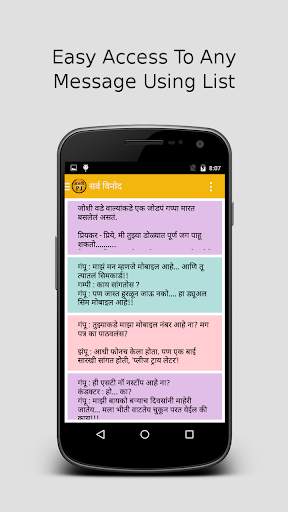 Easy Access To Any
Message Using List
8:07
सर्व विनोद
जोशी वडे वाल्यांकडे एक जोडपं गप्पा मारत
बसलेलं असतं.
प्रियकर - प्रिये, मी तुझ्या डोळ्यात पूर्ण जग पाहू
शकतो..........
गंपू : माझं मन म्हणजे मोबाइल आहे... आणि तू
त्यातलं सिमकार्ड!!
गम्पी : काय सांगतोस ?
गंपू : पण जास्त हुरळून जाऊ नको.... हा ड्युअल
सिम मोबाइल आहे!
गंपू : तुझ्याकडे माझा मोबाइल नंबर आहे ना? मग
पत्र का पाठवलंस?
झंपू : आधी फोनच केला होता, पण एक बाई
सारखी सांगत होती, 'प्लीज ट्राय लेटर!
गंपू : ही एसटी नॉ नस्टॉप आहे ना?
कंडक्टर : हो...
गंपू : माझी बायको बऱ्याच दिवसांनी माहेरी
जातेय... मला भीती वाटतेय चुकून परत येईल की
काय!!